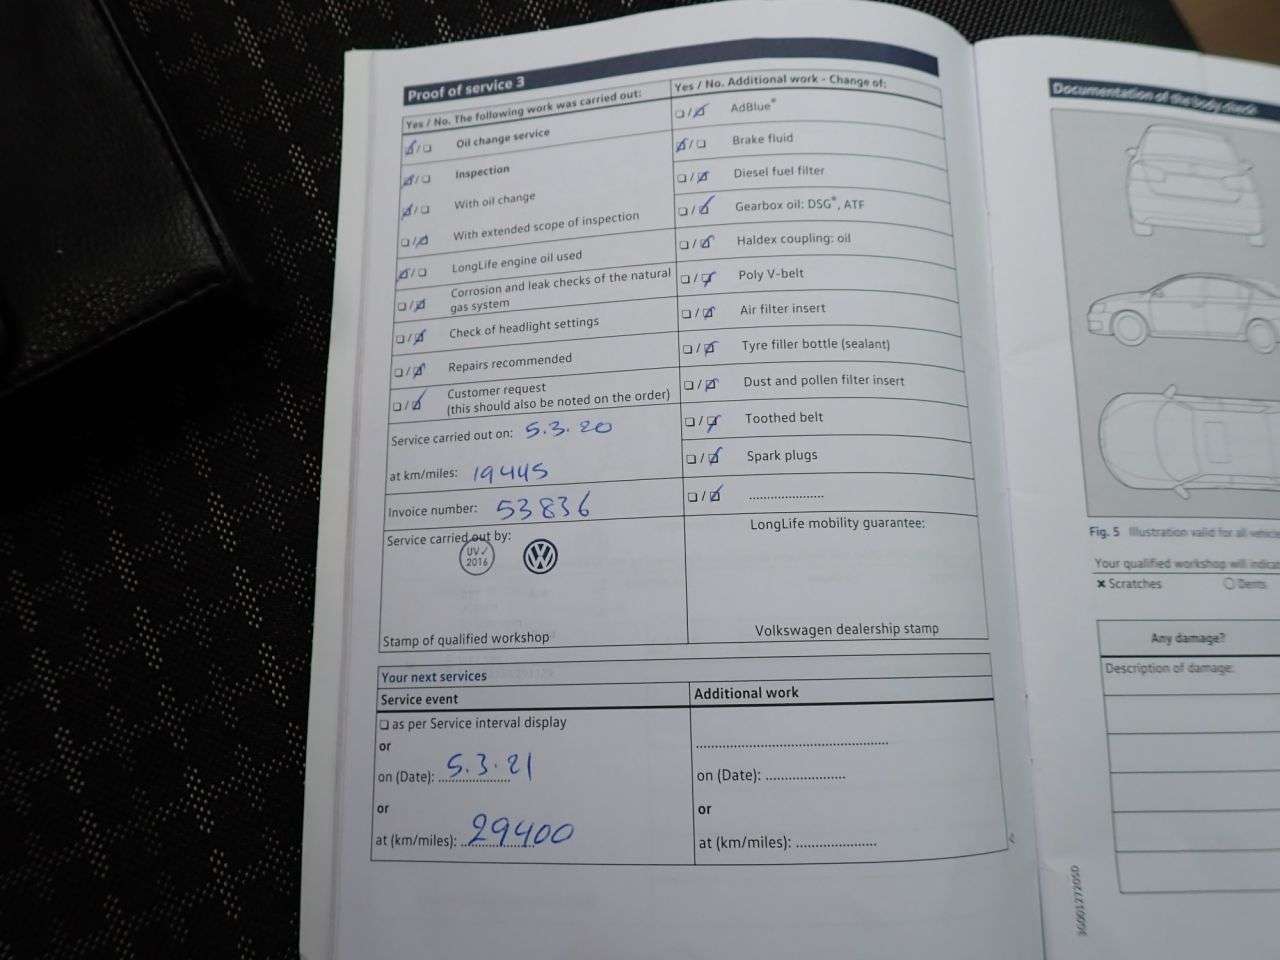 Proof of service 3
Yes / No. The following work was carried out:
❏/❏ Oil change service
❏/❏ Inspection
❏/❏ With oil change
❏/❏ With extended scope of inspection
❏/❏ LongLife engine oil used
❏/❏ Corrosion and leak checks of the natural
gas system
❏/❏ Check of headlight settings
❏/❏ Repairs recommended
❏/❏ Customer request
(this should also be noted on the order)
Service carried out on: 5.3.20
at km/miles: 19445
Invoice number: 53836
Service carried out by:
UV✓
2016
Stamp of qualified workshop
Yes / No. Additional work - Change of:
❏/❏ AdBlue®
❏/❏ Brake fluid
❏/❏ Diesel fuel filter
❏/❏ Gearbox oil: DSG®, ATF
❏/❏ Haldex coupling: oil
❏/❏ Poly V-belt
❏/❏ Air filter insert
❏/❏ Tyre filler bottle (sealant)
❏/❏ Dust and pollen filter insert
❏/❏ Toothed belt
❏/❏ Spark plugs
❏/❏ .....................
LongLife mobility guarantee:
Volkswagen dealership stamp
Your next services
Service event
❏ as per Service interval display
or
on (Date): 5.3.21
or
at (km/miles): 29400
Additional work
................................................
on (Date): ....................
or
at (km/miles): ....................
Documentation of the body check
Fig. 5 Illustration valid for all
Your qualified workshop will
× Scratches
Dents
Any damage?
Description of damage:
3G0012720SD